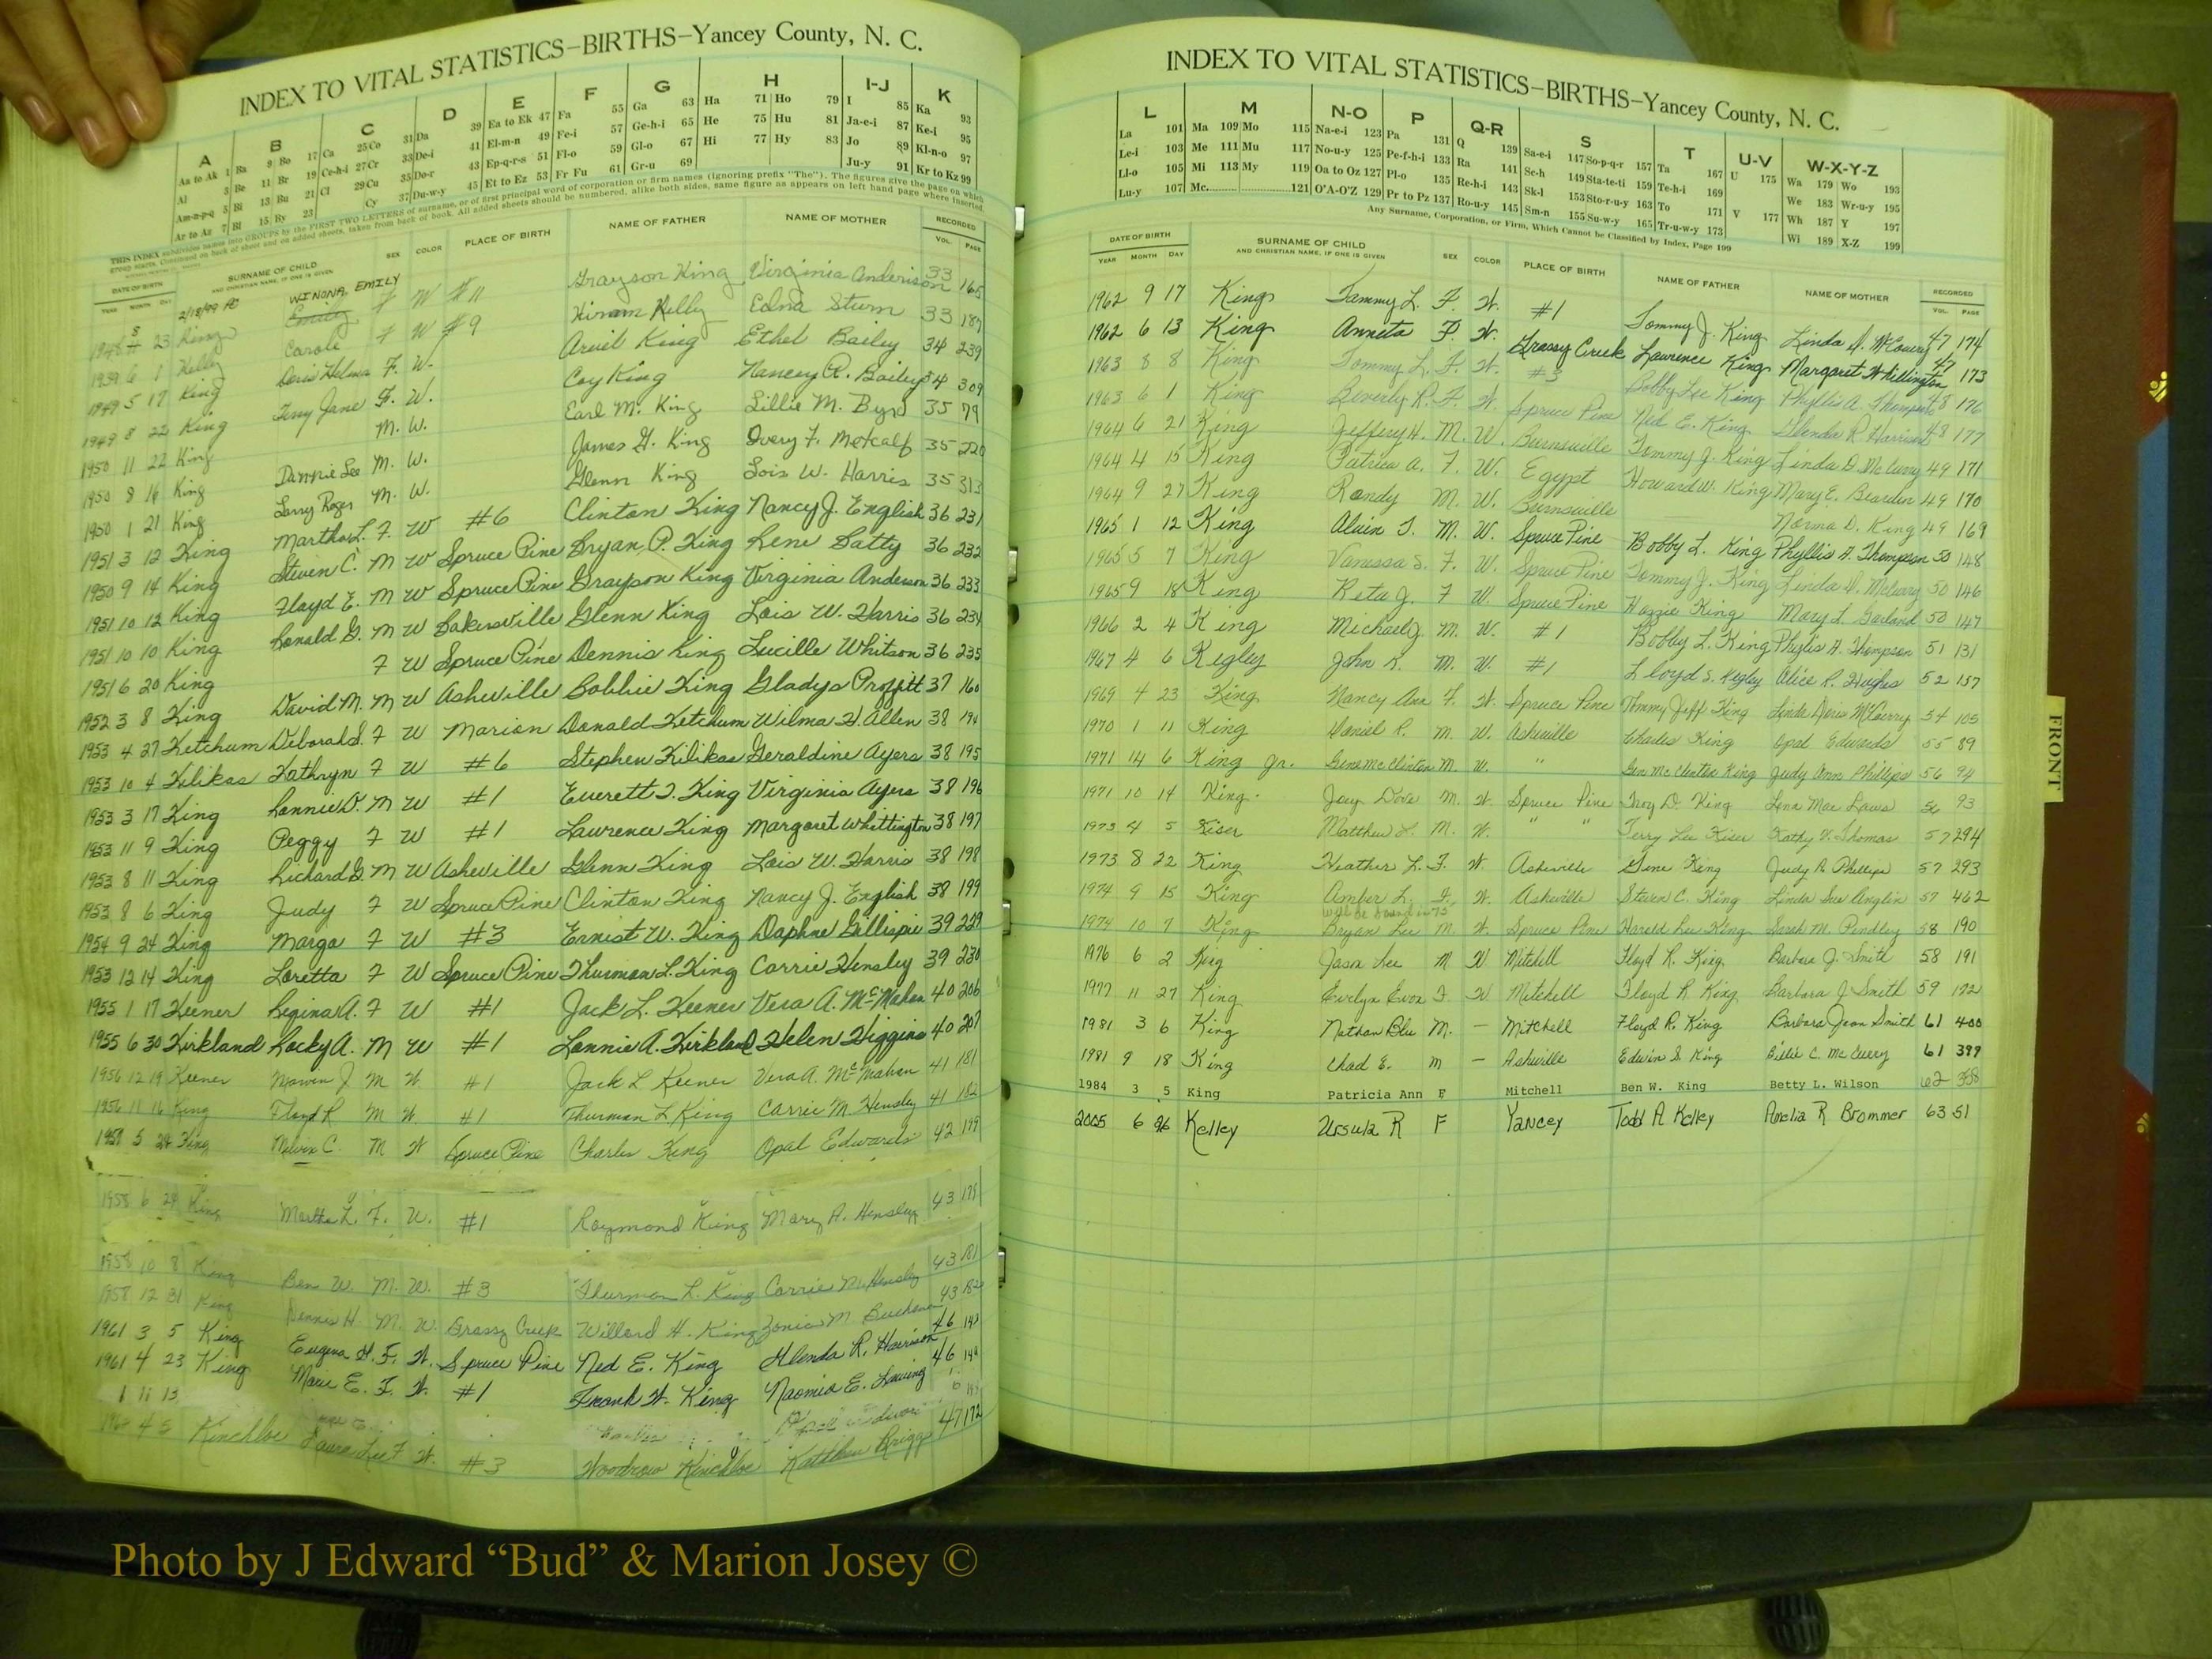 INDEX TO VITAL STATISTICS—BIRTHS—Yancey County, N. C.
A B C D E F G H I-J K
Aa to Ak 1 Ba 9 Bo 17 Ca 25 Co 31 Da 39 Ea to Ek 47 Fa 55 Ga 63 Ha 71 Ho 79 I 85 Ka 93
Al 3 Be 11 Br 19 Ce-h-i 27 Cr 33 De-i 41 El-m-n 49 Fe-i 57 Ge-h-i 65 He 75 Hu 81 Ja-e-i 87 Ke-i 95
Am-n-p-q 5 Bi 13 Bu 21 Cl 29 Cu 35 Do-r 43 Ep-q-r-s 51 Fl-o 59 Gl-o 67 Hi 77 Hy 83 Jo 89 Kl-n-o 97
Ar to Az 7 Bl 15 By 23 Cy 37 Du-w-y 45 Et to Ez 53 Fr Fu 61 Gr-u 69 Ju-y 91 Kr to Kz 99
THIS INDEX subdivides names into GROUPS by the FIRST TWO LETTERS of surname, or of first principal word of corporation or firm names (ignoring prefix "The"). The figures give the page on which
group starts. Continued on back of sheet and on added sheets, taken from back of book. All added sheets should be numbered, alike both sides, same figure as appears on left hand page where inserted.
DATE OF BIRTH SURNAME OF CHILD SEX COLOR PLACE OF BIRTH NAME OF FATHER NAME OF MOTHER RECORDED
YEAR MONTH DAY AND CHRISTIAN NAME, IF ONE IS GIVEN VOL. PAGE
WINONA, EMILY
23 King Emily F W #11 Grayson King Virginia Anderson 33 165
1939 6 1 Kelly Carole F W #9 Hiram Kelly Edna Sturn 33 187
1949 5 17 King Doris Helma F. W. Arvil King Ethel Bailey 34 239
1949 8 22 King Jane F. W. Coy King Nancy R. Bailey 34 309
1950 11 22 King M. W. Earl M. King Lillie M. Byrd 35 79
1950 8 16 King Dannie Lee M. W. James G. King Ivery F. Metcalf 35 220
1950 1 21 King Larry Roger M. W. Glenn King Lois W. Harris 35 313
1951 3 12 King Martha L. F. W #6 Clinton King Nancy J. English 36 231
1950 9 14 King Steven C. M W Spruce Pine Bryan P. King Rene Batty 36 232
1951 10 12 King Floyd E. M W Spruce Pine Grayson King Virginia Anderson 36 233
1951 10 10 King Ronald G. M W Bakersville Glenn King Lois W. Harris 36 234
1951 6 20 King F W Spruce Pine Dennis King Lucille Whitson 36 235
1952 3 8 King David M. M W Asheville Bobbie King Gladys Proffitt 37 160
1953 4 27 Ketchum Deborah S. F W Marion Donald Ketchum Wilma H. Allen 38 194
1953 10 4 Kilikas Kathryn F W #6 Stephen Kilikas Geraldine Ayers 38 195
1953 3 17 King Lonnie D. M W #1 Everett T. King Virginia Ayers 38 196
1953 11 9 King Peggy F W #1 Lawrence King Margaret Whittington 38 197
1953 8 11 King Richard G. M W Asheville Glenn King Lois W. Harris 38 198
1953 8 6 King Judy F W Spruce Pine Clinton King Nancy J. English 38 199
1954 9 24 King Marga F W #3 Ernist W. King Daphne Gillispie 39 229
1953 12 14 King Loretta F W Spruce Pine Thurman L. King Carrie Hensley 39 230
1955 1 17 Keener Regina A. F W #1 Jack L. Keener Vera A. McMahan 40 206
1955 6 30 Kirkland Rocky A. M W #1 Lonnie A. Kirkland Helen Higgins 40 207
1956 12 19 Keener Marvin J. M W. #1 Jack L Keener Vera A. McMahan 41 181
1956 11 16 King Floyd R M W. #1 Thurman L King Carrie M. Hensley 41 182
5 24 King Melvin C. M W Spruce Pine Charles King Opal Edwards 42 199
1958 6 24 King Martha L. F. W. #1 Raymond King Mary A. Hensley 43
1958 10 8 King Ben W. M. W. #3 Thurman L. King Carrie M. Hensley 43 181
1958 12 31 King Dennis H. M. W. Grassy Creek Willard H. King Zonia M. Buchanan 43 182
1961 3 5 King Eugena G. F. W. Spruce Pine Ned E. King Glenda R. Harrison 46
1961 4 23 King Marie E. F. W. #1 Frank W. King Naomia E. 46
4 5 Kinchloe Laura Lee F W. #3 Woodrow Kinchloe Kathleen Briggs 47 172
INDEX TO VITAL STATISTICS—BIRTHS—Yancey County, N. C.
L M N-O P Q-R S T U-V W-X-Y-Z
La 101 Ma 109 Mo 115 Na-e-i 123 Pa 131 Q 139 Sa-e-i 147 So-p-q-r 157 Ta 167 U 175 Wa 179 Wo 193
Le-i 103 Me 111 Mu 117 No-u-y 125 Pe-f-h-i 133 Ra 141 Sc-h 149 Sta-te-ti 159 Te-h-i 169 We 183 Wr-u-y 195
Ll-o 105 Mi 113 My 119 Oa to Oz 127 Pl-o 135 Re-h-i 143 Sk-l 153 Sto-r-u-y 163 To 171 V 177 Wh 187 Y 197
Lu-y 107 Mc 121 O'A-O'Z 129 Pr to Pz 137 Ro-u-y 145 Sm-n 155 Su-w-y 165 Tr-u-w-y 173 Wi 189 X-Z 199
Any Surname, Corporation, or Firm, Which Cannot be Classified by Index, Page 199
DATE OF BIRTH SURNAME OF CHILD SEX COLOR PLACE OF BIRTH NAME OF FATHER NAME OF MOTHER RECORDED
YEAR MONTH DAY AND CHRISTIAN NAME, IF ONE IS GIVEN VOL. PAGE
1962 9 17 King Tammy L. F. W. #1 Tommy J. King Linda D. McCourry 47 174
1962 6 13 King Anneta F. W. Grassy Creek Lawrence King Margaret Whittington 47 173
1963 8 8 King Tommy L. F. W. #3 Bobby Lee King Phyllis A. Thompson 48 176
1963 6 1 King Beverly R. F. W. Spruce Pine Ned E. King Glenda R Harrison 48 177
1964 6 21 King Jeffery H. M. W. Burnsville Tommy J. King Linda D. McCurry 49 171
1964 4 15 King Patrica A. F. W. Egypt Howard W. King Mary E. Bearden 49 170
1964 9 27 King Randy M. W. Burnsville Norma D. King 49 169
1965 1 12 King Alvin T. M. W. Spruce Pine Bobby L. King Phyllis A. Thompson 50 148
1965 5 7 King Vanessa S. F. W. Spruce Pine Tommy J. King Linda D. McCurry 50 146
1965 9 18 King Reta J. F W. Spruce Pine King Mary L. Garland 50 147
1966 2 4 King Michael J. M. W. #1 Bobby L. King Phyllis A. Thompson 51 131
1967 4 6 Kegley John K. M. W. #1 Lloyd S. Kegley Alice P. Hughes 52 157
1969 4 23 King Nancy Ann F. W. Spruce Pine Tommy Jeff King Linda Doris McCurry 54 105
1970 1 11 King Daniel R. M. W. Asheville Charles King Opal Edwards 55 89
1971 14 6 King Jr. Gene McClinton M. W. " Gene McClinton King Judy Ann Phillips 56 94
1971 10 14 King Joey Dove M. W. Spruce Pine Troy D. King Lena Mae Laws 56 93
1973 4 5 Kiser Matthew L. M. W. " " Terry Lee Kiser Kathy V. Thomas 57 294
1973 8 22 King Heather L. F. W. Asheville Gene King Judy A. Phillips 57 293
1974 9 15 King Amber L. F. W. Asheville Steven C. King Linda Sue Anglin 57 462
1974 10 7 King Bryan Lee M. W. Spruce Pine Harold Lee King Sarah M. Pendley 58 190
1976 6 2 King Jason Lee M W Mitchell Floyd R. King Barbara J. Smith 58 191
1977 11 27 King Evelyn Evon F. W Mitchell Floyd R King Barbara J Smith 59 172
1981 3 6 King Nathan Blu M. — Mitchell Floyd R. King Barbara Jean Smith 61 400
1981 9 18 King Chad E. M — Asheville Edwin S. King Billie C. McCurry 61 399
1984 3 5 King Patricia Ann F Mitchell Ben W. King Betty L. Wilson 62 358
2005 6 26 Kelley Ursula R F Yancey Todd A Kelley Amelia R Brommer 63 51
FRONT
Photo by J Edward “Bud” & Marion Josey ©